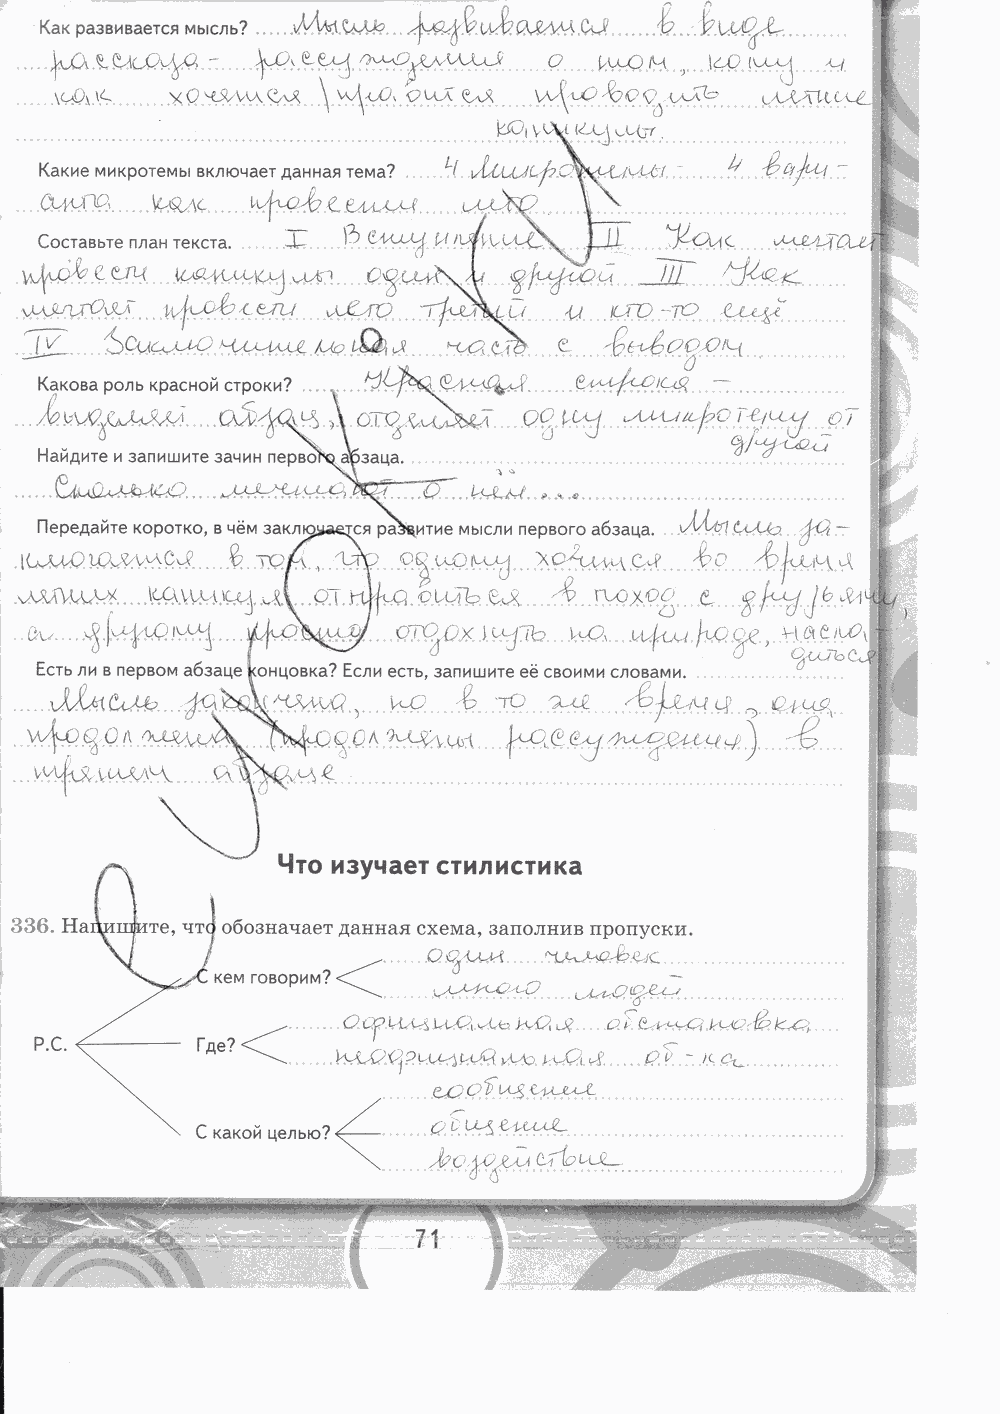 Как развивается мысль? Мысль развивается в виде
рассказа - рассуждения о том, кому и
как хочется / нравится проводить летние
каникулы.
Какие микротемы включает данная тема? 4 микротемы - 4 вари-
анта как провести лето.
Составьте план текста. I Вступление II Как мечтает
провести каникулы один и другой III Как
мечтает провести лето третий и кто-то ещё
IV Заключительная часть с выводом
Какова роль красной строки? Красная строка -
выделяет абзац, отделяет одну микротему от
другой
Найдите и запишите зачин первого абзаца.
Сколько мечтают о нём...
Передайте коротко, в чём заключается развитие мысли первого абзаца. Мысль за-
ключается в том, что одному хочется во время
летних каникул отправиться в поход с друзьями,
а другому просто отдохнуть на природе, насла-
диться
Есть ли в первом абзаце концовка? Если есть, запишите её своими словами.
Мысль закончена, но в то же время, она
продолжена (продолжены рассуждения) в
третьем абзаце
Что изучает стилистика
336. Напишите, что обозначает данная схема, заполнив пропуски.
один человек
С кем говорим?
много людей
официальная обстановка
Р.С. Где?
неофициальная об-ка
сообщение
С какой целью? общение
воздействие
71
еуроки.ru